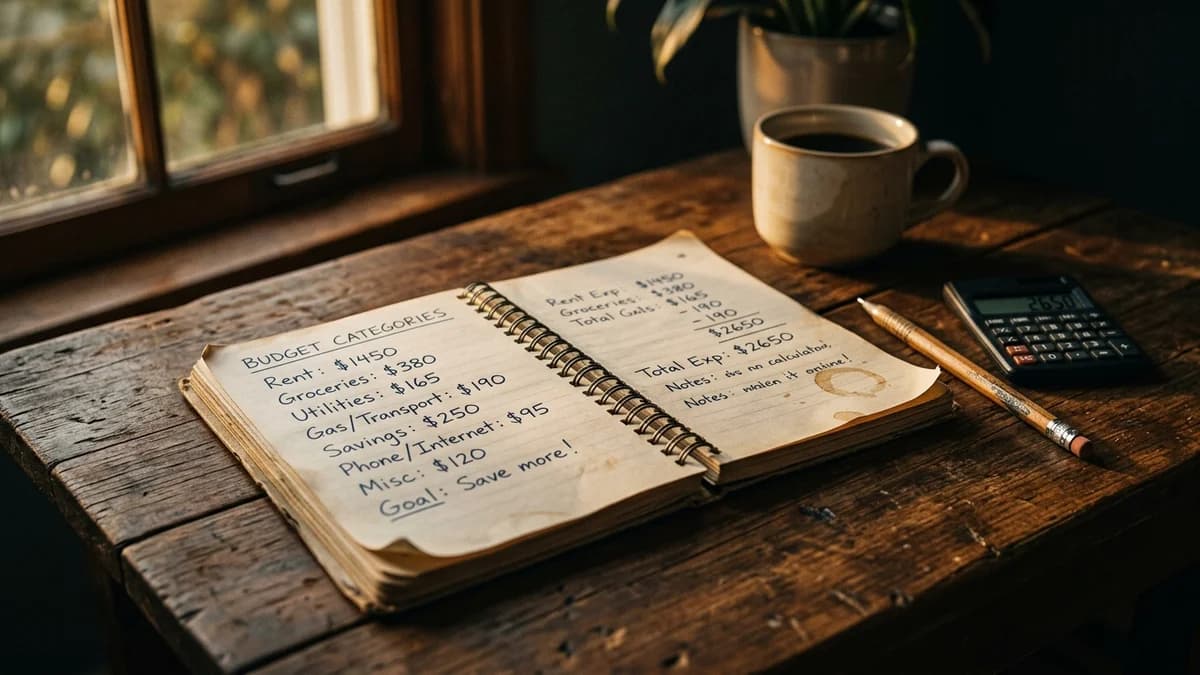 BUDGET CATEGORIES
Rent: $1450
Groceries: $380
Utilities: $165
Gas/Transport: $190
Savings: $250
Phone/Internet: $95
Misc: $120
Goal: Save more!
Rent Exp: $1450
Groceries: $380
Total Gals: $165
- 190
- 190
$2650
Total Exp: $2650
Notes: on calculator,
Notes: it online!
2650